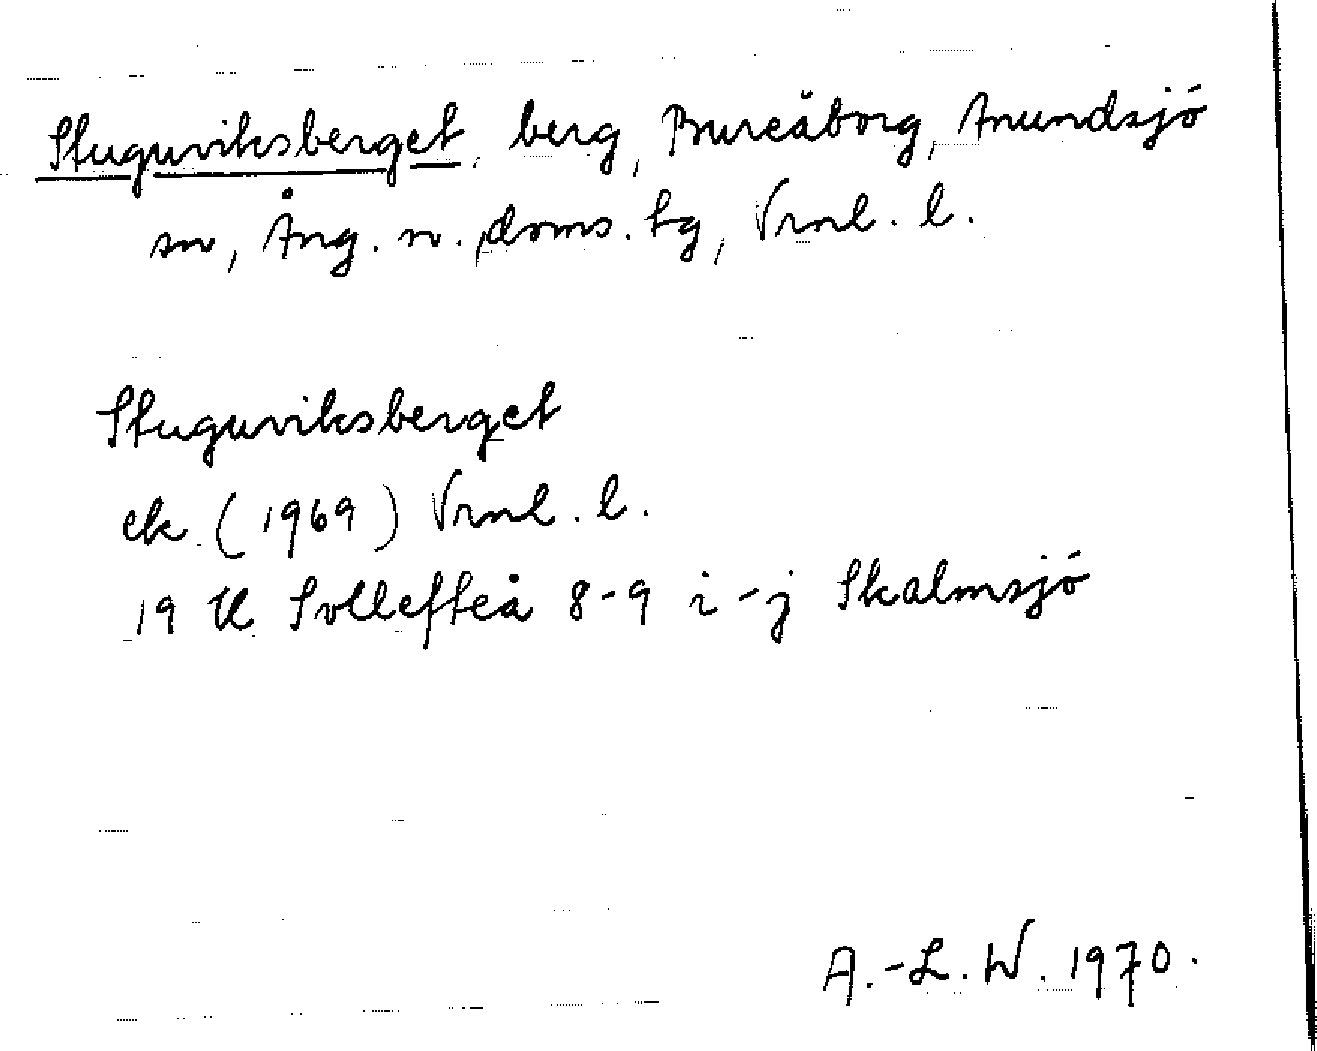 Stuguviksberget, berg, Bureåborg, Anundsjö
sn, Ång. n. doms. tg, Vrnl. l.
Stuguviksberget
ek. (1969) Vrnl. l.
19 H Sollefteå 8-9 i-j Skalmsjö
A.-L. W. 1970.